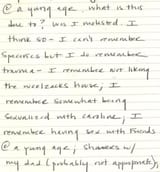 @ a young age. what is this
due to? was I molested. I
think so - I can't remember
specifics but I do remember
trauma - I remember not liking
the house, I
remember somewhat being
sexualized with Caroline, I
remember having sex with friends
@ a young age, showers w/
my dad (probably not appropriate),